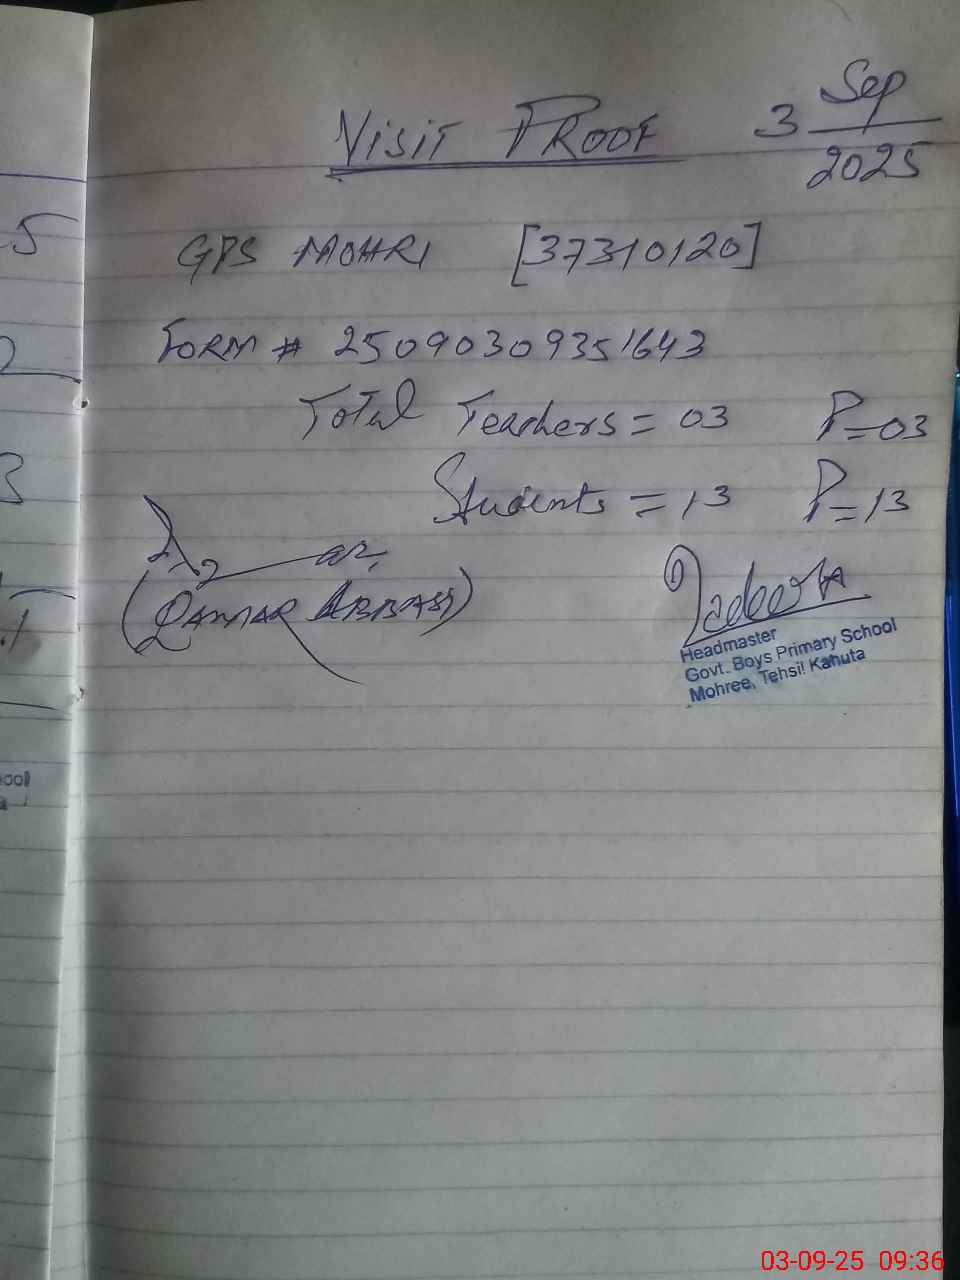 Visit Proof 3 Sep
2025
GPS MOHRI [37310120]
Form # 25090309351643
Total Teachers = 03 P=03
Students = 13 P=13
(Qamar Abbasi)
Headmaster
Govt. Boys Primary School
Mohree, Tehsil Kahuta
5
2
3
.1
ool
a
03-09-25 09:36